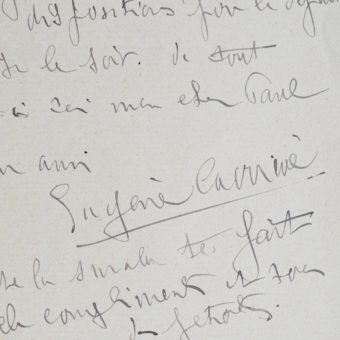 dispositions pour le
le soir. de tout
mon cher Paul
ami
Eugène Carrière
la smala te fait
compliments et